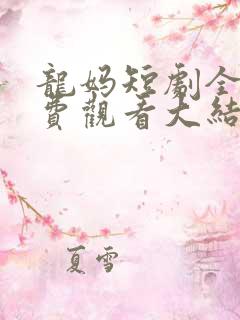 龍媽短劇全
費觀看大結
夏雪